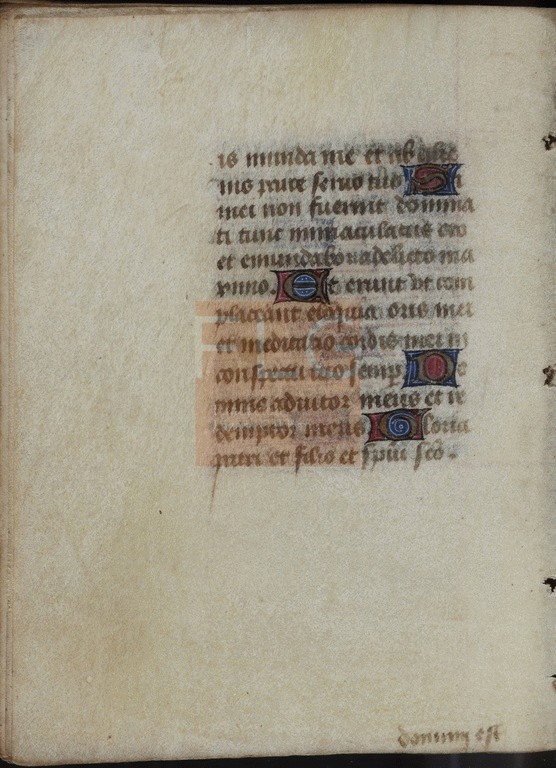 is munda me et ab alie
nis parce servo tuo Si
mei non fuerint domina
ti tunc inmaculatus ero
et emundabor a delicto ma
ximo. Et erunt vt com
placeant eloquia oris mei
et meditatio cordis mei in
conspectu tuo semp Do
mine adiutor meus et re
demptor meus Gloria
patri et filio et spiui sco.
domini est